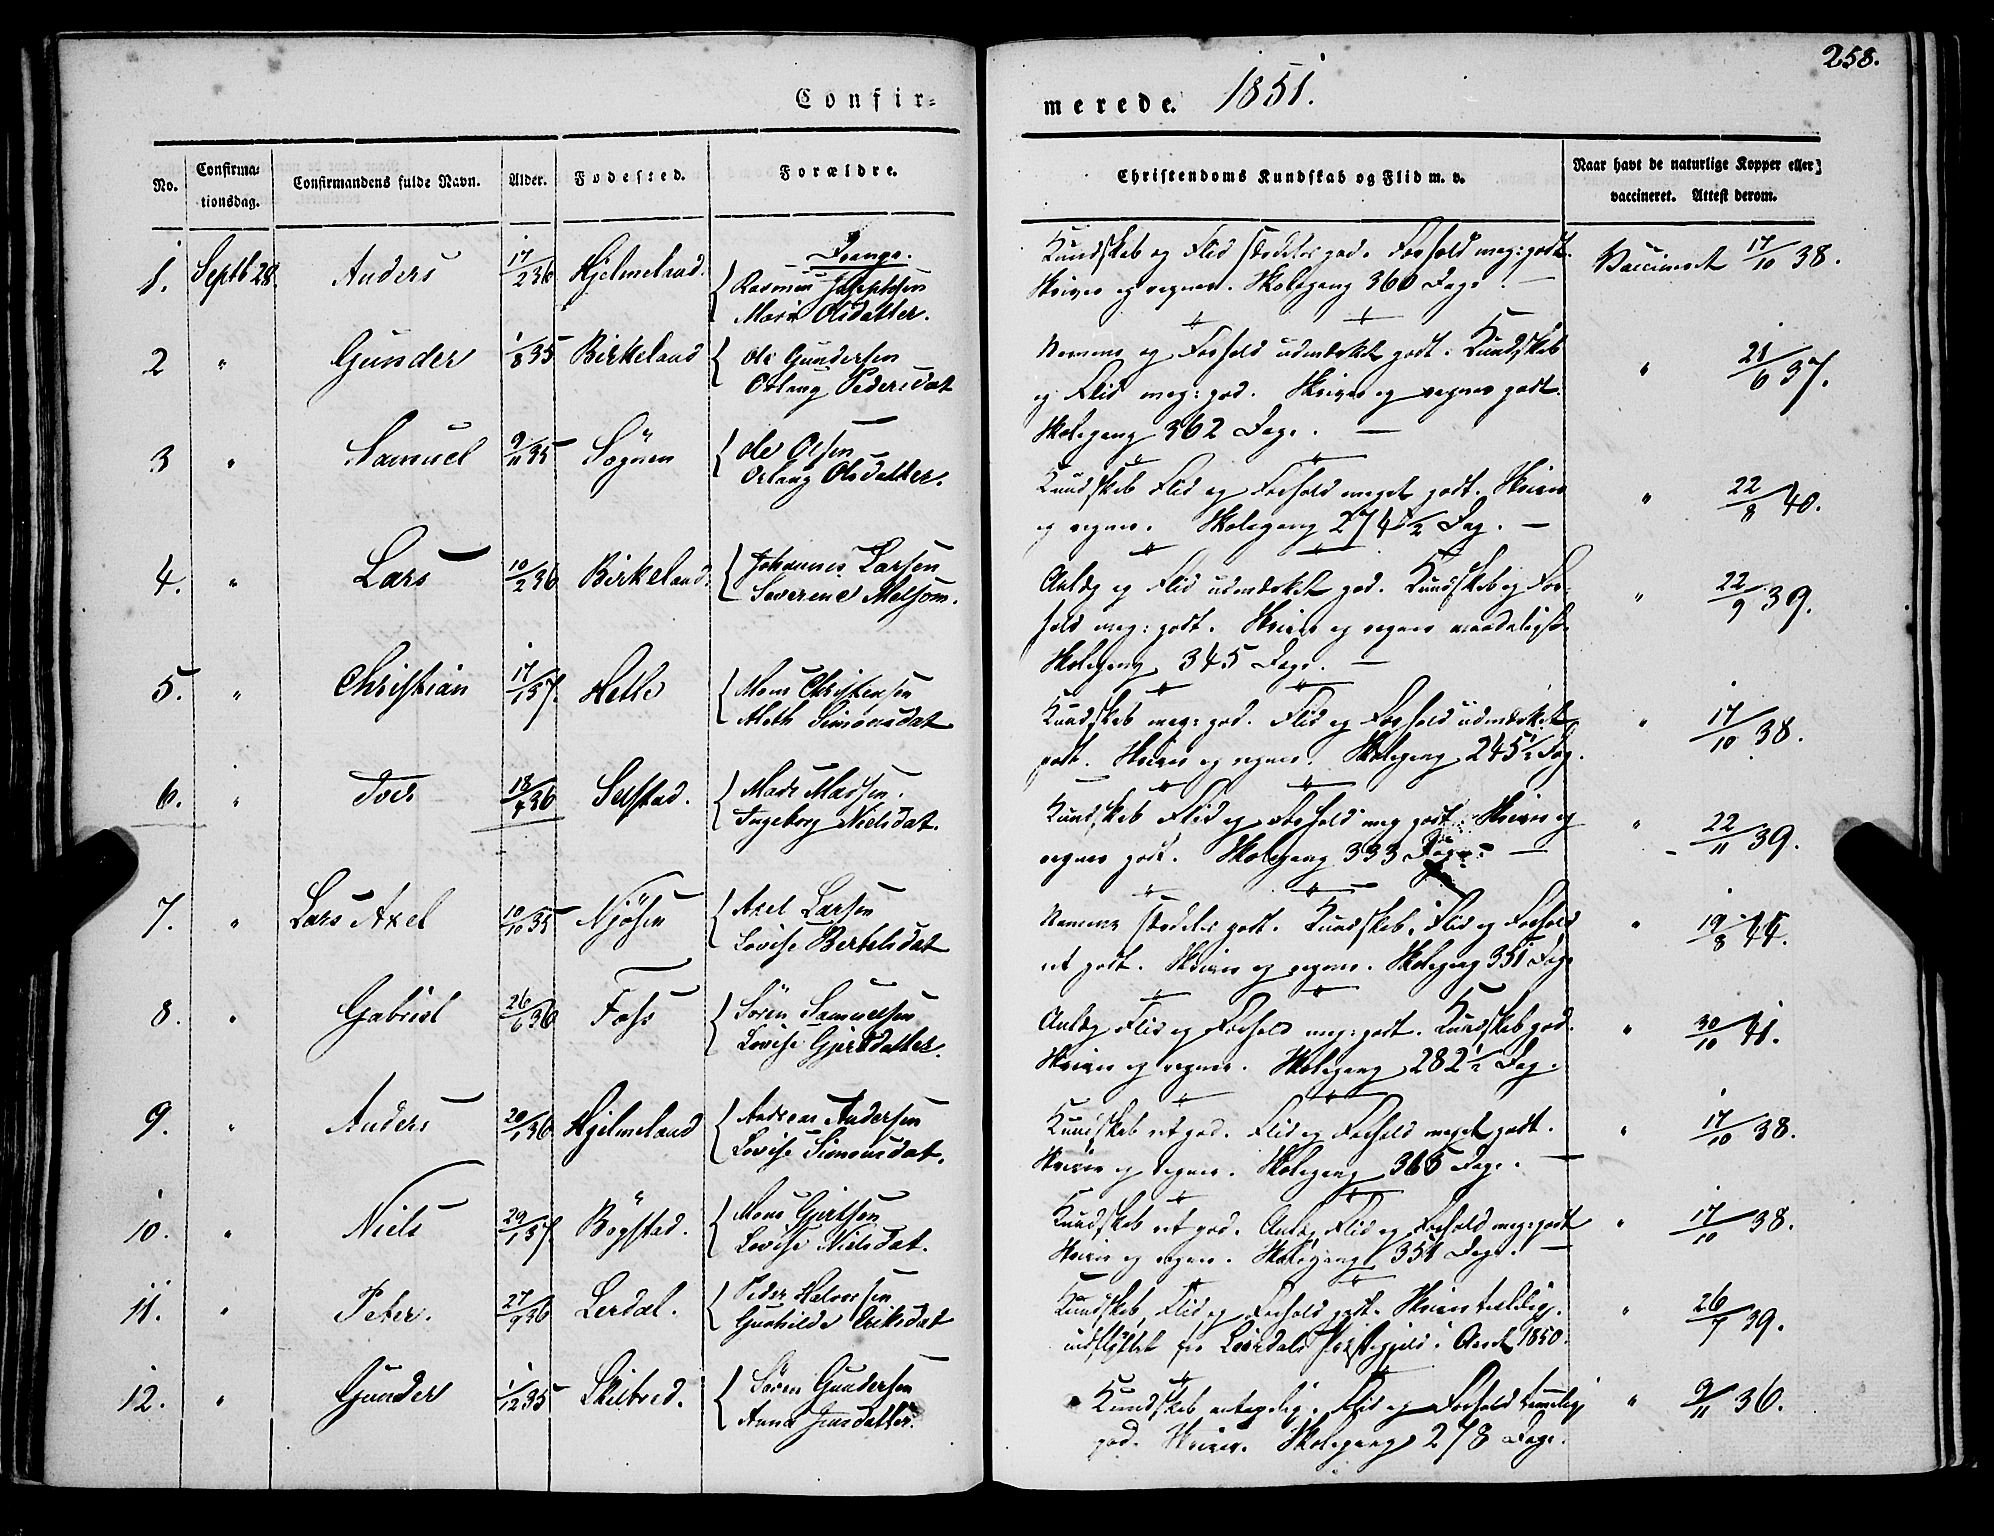 258.
Confir-
merede. 1851.
No.
Confirma-
tionsdag.
Confirmandens fulde Navn.
Alder.
Fodested.
Forældre.
Christendoms Kundskab og Flid m. v.
Naar havt de naturlige Kopper eller
vaccineret. Attest derom.
Drenge.
1. Septb 28 Anders 17/2 36 Hjelmeland.
Rasmus Josephsen
Maria Olsdatter.
Kundskab og Flid særdeles god. Forhold meg: godt.
Skriver og regner. Skolegang 360 Dage.
Vaccineret 17/10 38.
2 " Gunder 1/8 35 Birkeland
Ole Gundersen
Aslaug Pedersdat
Nemme og Forhold udmærket godt. Kundskab
og Flid meg: god. Skriver og regner godt.
Skolegang 362 Dage.
" 21/6 37.
3 " Samuel 9/11 35 Sögnen
Ole Olsen
Aslaug Olsdatter.
Kundskab Flid og Forhold meget godt. Skriver
og regner. Skolegang 274 1/2 Dag.
" 22/8 40.
4. " Lars 10/2 36 Birkeland.
Johannes Larsen
Severine Melsom.
Anlæg og Flid udmærket god. Kundskab og For-
hold meg: godt. Skriver og regner maadeligt.
Skolegang 345 Dage.
" 22/9 39.
5. " Christian 17/1 37. Helle
Mons Christensen
Aleth Simonsdat
Kundskab meg: god. Flid og Forhold udmærket
godt. Skriver og regner. Skolegang 245 1/2 Dag.
" 17/10 38.
6. " Tver 18/4 36 Selstad.
Mads Madsen.
Ingeborg Nielsdat.
Kundskab Flid og Forhold meg godt. Skriver og
regner godt. Skolegang 333 Dage.
" 22/11 39.
7. " Lars Axel 10/10 35 Njösen
Axel Larsen
Lovise Bertelsdat
Nemme særdeles godt. Kundskab, Flid og Forhold
ret godt. Skriver og regner. Skolegang 351 Dage
" 19/8 44.
8. " Gabriel 26/6 36 Foss
Sören Samuelsen
Lovise Gjertsdatter.
Anlæg Flid og Forhold meg: godt. Kundskab god.
Skriver og regner. Skolegang 282 1/2 Dag.
" 30/10 41.
9. " Anders 20/1 36 Hjelmeland
Andreas Andersen
Lovise Simonsdat.
Kundskab ret god. Flid og Forhold meget godt.
Skriver og regner. Skolegang 365 Dage.
" 17/10 38.
10. " Niels 29/1 37. Bögstad.
Mons Gjertsen
Lovise Nielsdat.
Kundskab ret god. Anlæg, Flid og Forhold meg: godt
Skriver og regner. Skolegang 351 Dage.
" 17/10 38.
11. " Peter. 27/9 36 Lerdal.
Peder Halvorsen
Gunhilde Eriksdat
Kundskab, Flid og Forhold godt. Skriver taalelig.
indflyttet fra Leirdals Præstegjeld i 1850.
" 26/7 39.
12. " Gunder 1/12 35 Skilbred.
Sören Gundersen
Anna Jensdatter.
Kundskab antagelig. Flid og Forhold temmelig
god. Skriver. Skolegang 278 Dage.
" 9/11 36.